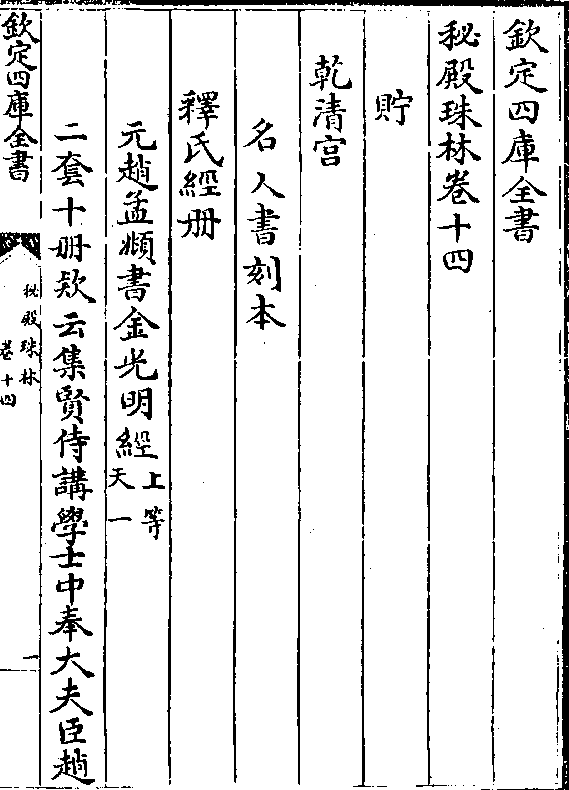 欽定四庫全書
秘殿珠林卷十四
貯
乾清宫
名人書刻本
釋氏經册
元趙孟頫書金光明經上等天一
二套十册欵云集賢侍講學士中奉大夫臣趙
欽定四庫全書
秘殿珠林
卷十四
一